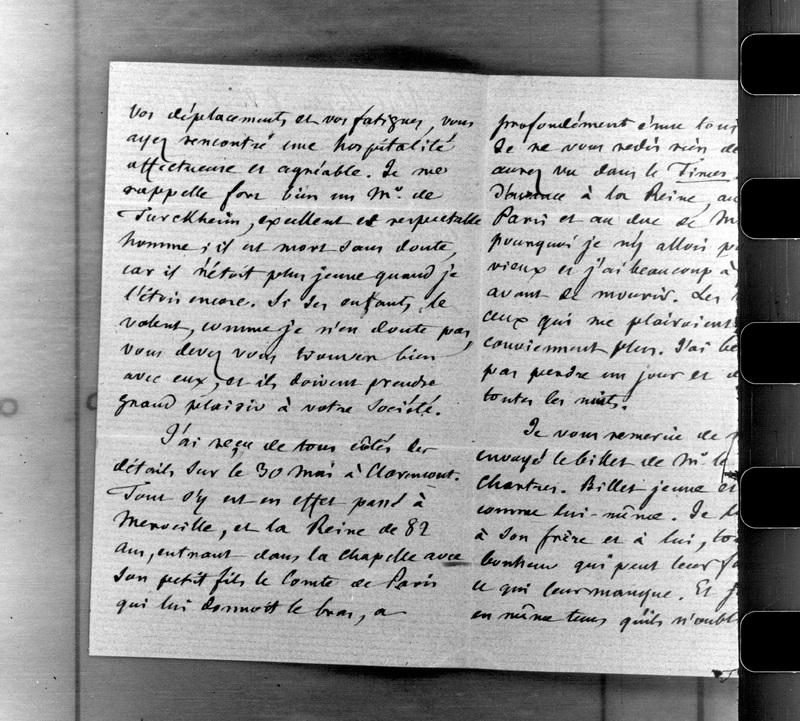 vos déplacements et vos fatigues, vous
ayez rencontré une hospitalité
affectueuse et agréable. Je me
rappelle fort bien un Mr. de
Turckheim, excellent et respectable
homme ; il est mort sans doute,
car il n'étoit plus jeune quand je
l'étois encore. Si ses enfants le
valent, comme je n'en doute pas,
vous devez vous trouver bien
avec eux, et ils doivent prendre
grand plaisir à votre société.
J'ai reçu de tous côtés des
détails sur le 30 mai à Claremont.
Tout s'y est en effet passé à
Merveille, et la Reine de 82
ans, entrant dans la chapelle avec
son petit fils le Comte de Paris
qui lui donnoit le bras, a
profondément émue tous
Je ne vous redis rien de
aurez vu dans le Times.
d'avance à la Reine, au
Paris et au duc de
pourquoi je n'y allois
vieux et j'ai beaucoup à
avant de mourir. Les
ceux qui me plairoient
conviennent plus. J'ai
pas perdre un jour et
toutes les nuits.
Je vous remercie de
envoyé le billet de Mr. le
Chartres. Billet jeune et
comme lui-même. Je
à son frère et à lui,
bonheur qui peut leur
ce qui leur manque. Et
en même tems qu'ils n'oubl